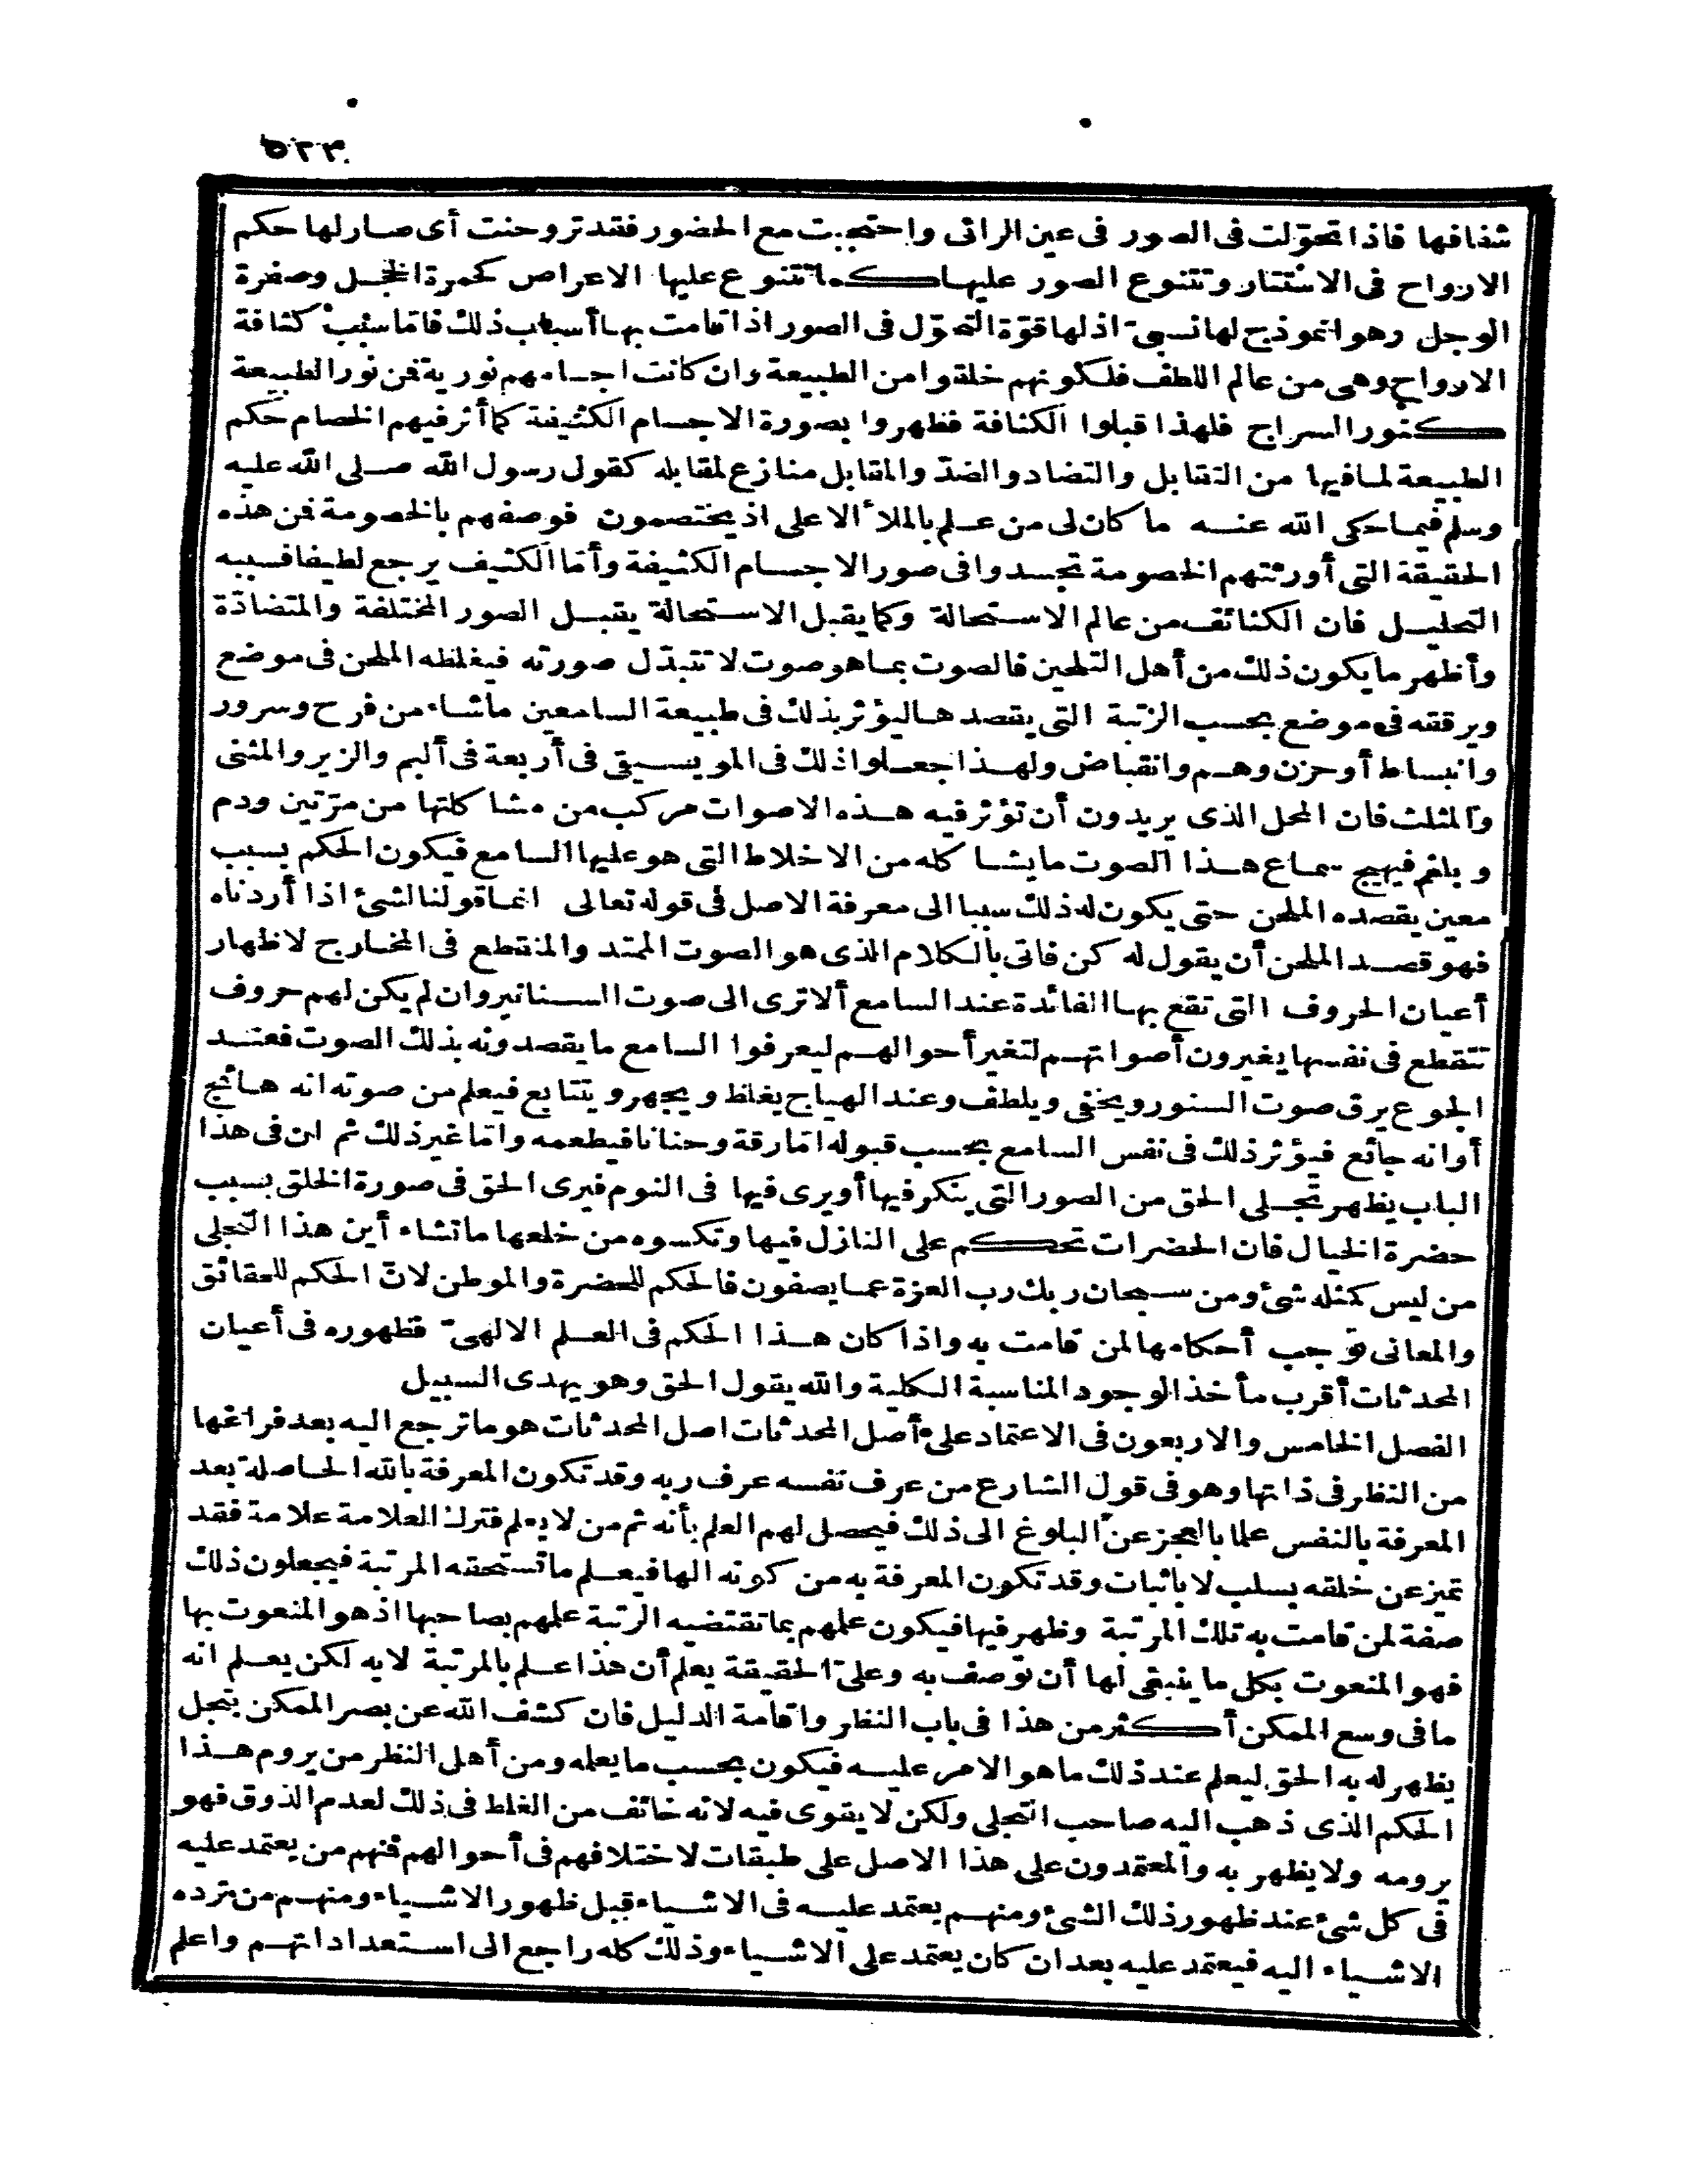 ٥٢٣
شفافها فاذا تحوّلت فى الصور فى عين الرائى واحتجبت مع الحضور فقد تروحنت أى صار لها حكم
الارواح فى الاستتار وتتنوع الصور عليها كما تتنوع عليها الاعراض كحمرة الخجل وصفرة
الوجل وهو انموذج لها نسبىّ اذ لها قوّة التحوّل فى الصور اذا قامت بها أسباب ذلك فاما سبب كثافة
الارواح وهى من عالم اللطف فلكونهم خلقوا من الطبيعة وان كانت اجسامهم نورية فمن نور الطبيعة
كنور السراج فلهذا قبلوا الكثافة فظهروا بصورة الاجسام الكثيفة كما أثر فيهم الخصام حكم
الطبيعة لما فيها من التقابل والتضاد والضدّ والمقابل منازع لمقابله كقول رسول الله صلى الله عليه
وسلم فيما حكى الله عنه ما كان لى من علم بالملأ الاعلى اذ يختصمون فوصفهم بالخصومة فمن هذه
الحقيقة التى أورثتهم الخصومة تجسدوا فى صور الاجسام الكثيفة وأما الكثيف يرجع لطيفا فسببه
التحليل فان الكثائف من عالم الاستحالة وكما يقبل الاستحالة يقبل الصور المختلفة والمتضادّة
وأظهر ما يكون ذلك من أهل التلحين فالصوت بما هو صوت لا تتبدّل صورته فيغلظه الملحن فى موضع
ويرققه فى موضع بحسب الرتبة التى يقصدها ليؤثر بذلك فى طبيعة السامعين ماشاء من فرح وسرور
وانبساط أو حزن وهم وانقباض ولهذا جعلوا ذلك فى المويسيقى فى أربعة فى ألبم والزير والمثنى
والمثلث فان المحل الذى يريدون أن تؤثر فيه هذه الاصوات مركب من مشاكلتها من مرّتين ودم
وبلغم فيهيج سماع هذا الصوت ما يشاكله من الاخلاط التى هو عليها السامع فيكون الحكم بسبب
معين يقصده الملحن حتى يكون له ذلك سببا الى معرفة الاصل فى قوله تعالى انما قولنا لشئ اذا أردناه
فهو قصد الملحن أن يقول له كن فاتى بالكلام الذى هو الصوت الممتد والمنقطع فى المخارج لاظهار
أعيان الحروف التى تقع بها الفائدة عند السامع ألا ترى الى صوت السنانير وان لم يكن لهم حروف
تتقطع فى نفسها يغيرون أصواتهم لتغير أحوالهم ليعرفوا السامع ما يقصدونه بذلك الصوت فعند
الجوع يرق صوت السنور ويخفى ويلطف وعند الهياج يغلظ ويجهر ويتتابع فيعلم من صوته انه هائج
أو انه جائع فيؤثر ذلك فى نفس السامع بحسب قبوله اما رقة وحنانا فيطعمه واما غير ذلك ثم ان فى هذا
الباب يظهر تجلى الحق من الصور التى ينكر فيها أو يرى فيها فى النوم فيرى الحق فى صورة الخلق بسبب
حضرة الخيال فان الحضرات تحكم على النازل فيها وتكسوه من خلعها ما تشاء أين هذا التجلى
من ليس كمثله شئ ومن سبحان ربك رب العزة عما يصفون فالحكم للحضرة والموطن لانّ الحكم للحقائق
والمعانى توجب أحكامها لمن قامت به واذا كان هذا الحكم فى العلم الالهىّ فظهوره فى أعيان
المحدثات أقرب مأخذ الوجود المناسبة الكلية والله يقول الحق وهو يهدى السبيل
الفصل الخامس والاربعون فى الاعتماد على أصل المحدثات اصل المحدثات هو ما ترجع اليه بعد فراغها
من النظر فى ذاتها وهو فى قول الشارع من عرف نفسه عرف ربه وقد تكون المعرفة بالله الحاصلة بعد
المعرفة بالنفس علما بالعجز عن البلوغ الى ذلك فيحصل لهم العلم بأنه ثم من لا يعلم فترك العلامة علامة فقد
تميز عن خلقه بسلب لا باثبات وقد تكون المعرفة به من كونه الها فيعلم ما تستحقه المرتبة فيجعلون ذلك
صفة لمن قامت به تلك المرتبة وظهر فيها فيكون علمهم بما تقتضيه الرتبة علمهم بصاحبها اذ هو المنعوت بها
فهو المنعوت بكل ما ينبغى لها أن توصف به وعلى الحقيقة يعلم أن هذا علم بالمرتبة لا به لكن يعلم انه
ما فى وسع الممكن أكثر من هذا فى باب النظر واقامة الدليل فان كشف الله عن بصر الممكن بتجل
يظهر له به الحق ليعلم عند ذلك ما هو الامر عليه فيكون بحسب ما يعلمه ومن أهل النظر من يروم هذا
الحكم الذى ذهب اليه صاحب التجلى ولكن لا يقوى فيه لانه خائف من الغلط فى ذلك لعدم الذوق فهو
يرومه ولا يظهر به والمعتمدون على هذا الاصل على طبقات لاختلافهم فى أحوالهم فمنهم من يعتمد عليه
فى كل شئ عند ظهور ذلك الشئ ومنهم يعتمد عليه فى الاشياء قبل ظهور الاشياء ومنهم من ترده
الاشياء اليه فيعتمد عليه بعد ان كان يعتمد على الاشياء وذلك كله راجع الى استعداداتهم واعلم